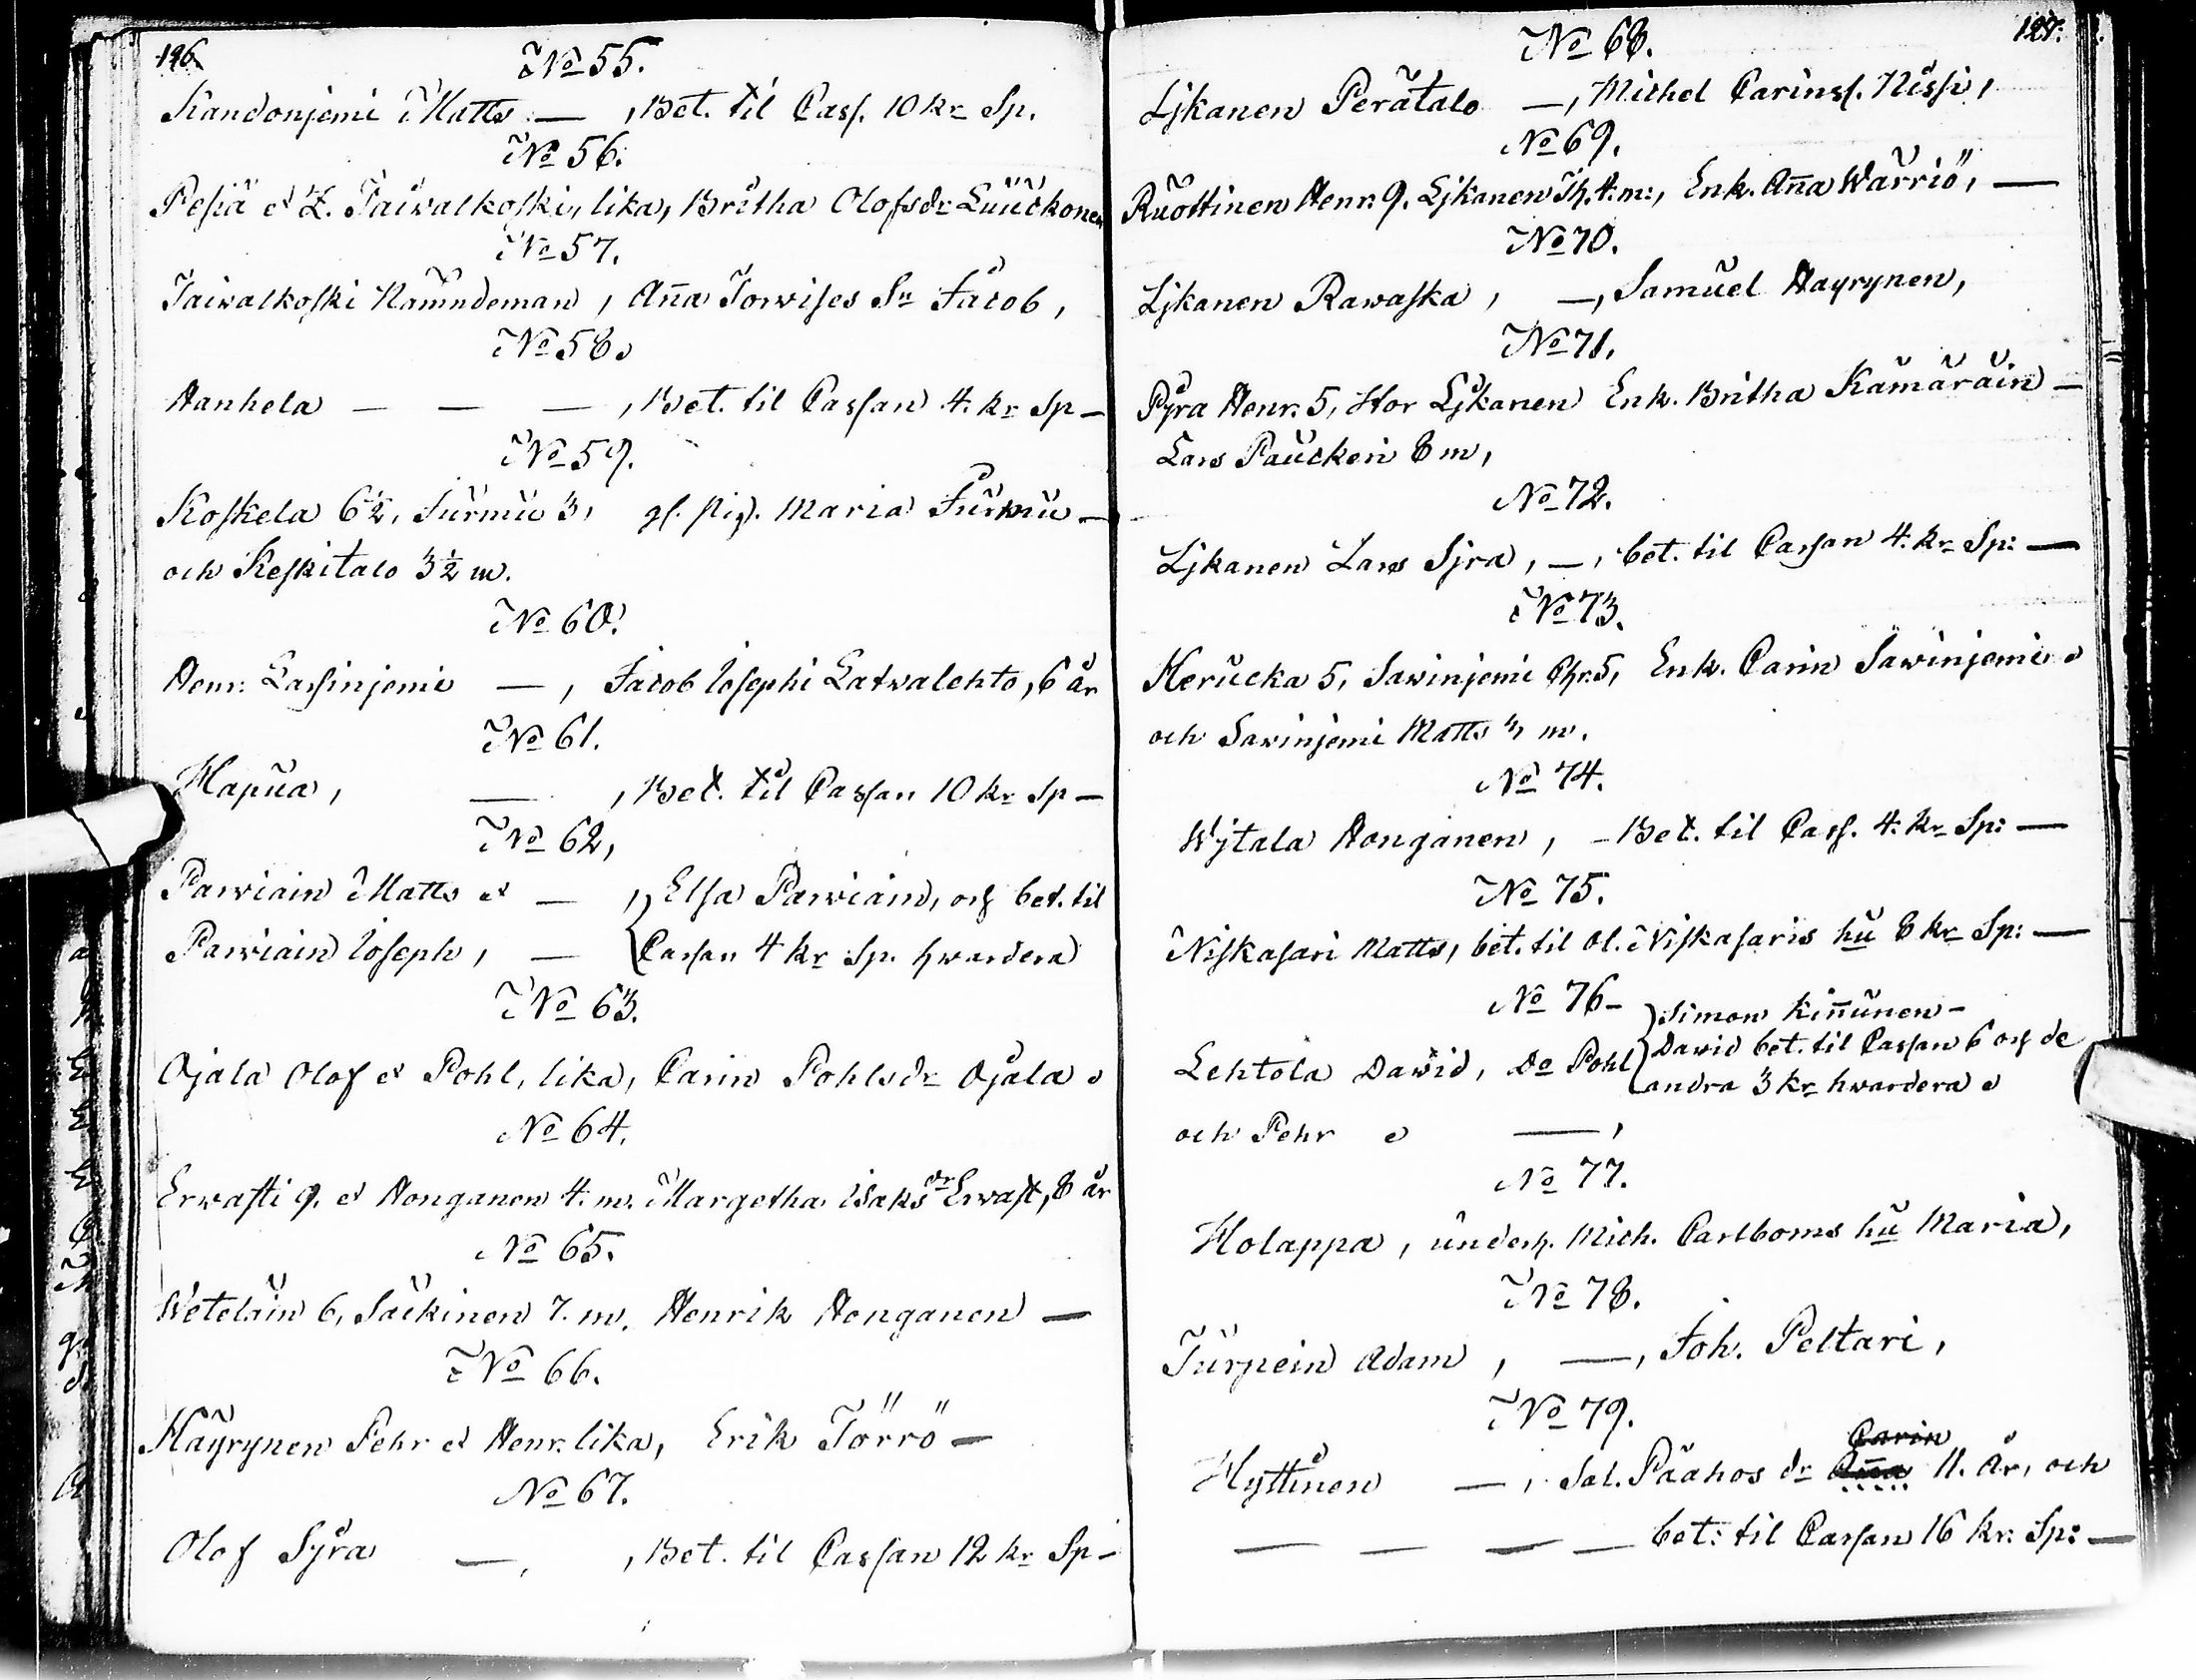 126.
No 55.
Kandonjemi Matts — , Bet. til Cass. 10 kr Sp.
No 56.
Pesiä et Z. Taiwalkoski, lika, Britha Olofsdr Luuckonen
No 57.
Taiwalkoski Nämndeman, Anna Torwises Sn Jacob,
No 58.
Hanhela — — — , Bet. til Cassan 4. kr Sp —
No 59.
Koskela 6½, Jurmu 3, gl. pig. Maria Jurmu —
och Keskitalo 3½ m.
No 60.
Henr. Lassinjemi — , Jacob Josephi Latwalehto, 6 år
No 61.
Hapua, — , Bet. til Cassan 10 kr Sp —
No 62,
Parviain Matts et — , Elsa Parviain, och bet. til
Parviain Joseph, — Cassan 4 kr Sp. hwardera
No 63.
Ojala Olof et Pohl, lika, Carin Pohlsdr Ojala
No 64.
Erwasti 9. et Honganen 4. m. Margetha Isaksdr Erwast, 8 år
No 65.
Wetelain 6, Säckinen 7. m. Henrik Honganen —
No 66.
Häyrynen Pehr et Henr. lika, Erik Törrö —
No 67.
Olof Syra — , , Bet. til Cassan 12 kr Sp —
127.
No 68.
Ljkanen Perätalo — , Michel Carinss. Nissi,
No 69.
Ruottinen Henr. 9. Ljkanen Th. 4. m:, Enk. Anna Warriö, —
No 70.
Ljkanen Rawaska, — , Samuel Hayrynen,
No 71.
Pyra Henr. 5, Hor Ljkanen Enk. Britha Kämäräin —
Lars Paucken 8 m,
No 72.
Ljkanen Lars Sjra, — , bet. til Cassan 4. kr Sp: —
No 73.
Kerucka 5, Sawinjemi Chr. 5, Enk. Carin Sawinjemi
och Sawinjemi Matts 3 m.
No 74.
Wjtala Honganen, – Bet. til Cass. 4. kr Sp: —
No 75.
Niskasari Matts, bet. til Ol. Niskasaris hu 8 kr Sp: —
No 76 –
Simon Kinnunen –
Lehtola David, Do Pohl David bet. til Cassan 6 och de
andra 3 kr hwardera
och Pehr — ,
No 77.
Holappa, underh. Mich. Carlboms hu Maria,
No 78.
Turpein Adam, — , Joh. Peltari,
No 79.
Carin
Hyttinen — , Sal. Päähos dr Anna 11. år, och
— — — — bet: til Cassan 16 kr: Sp: —